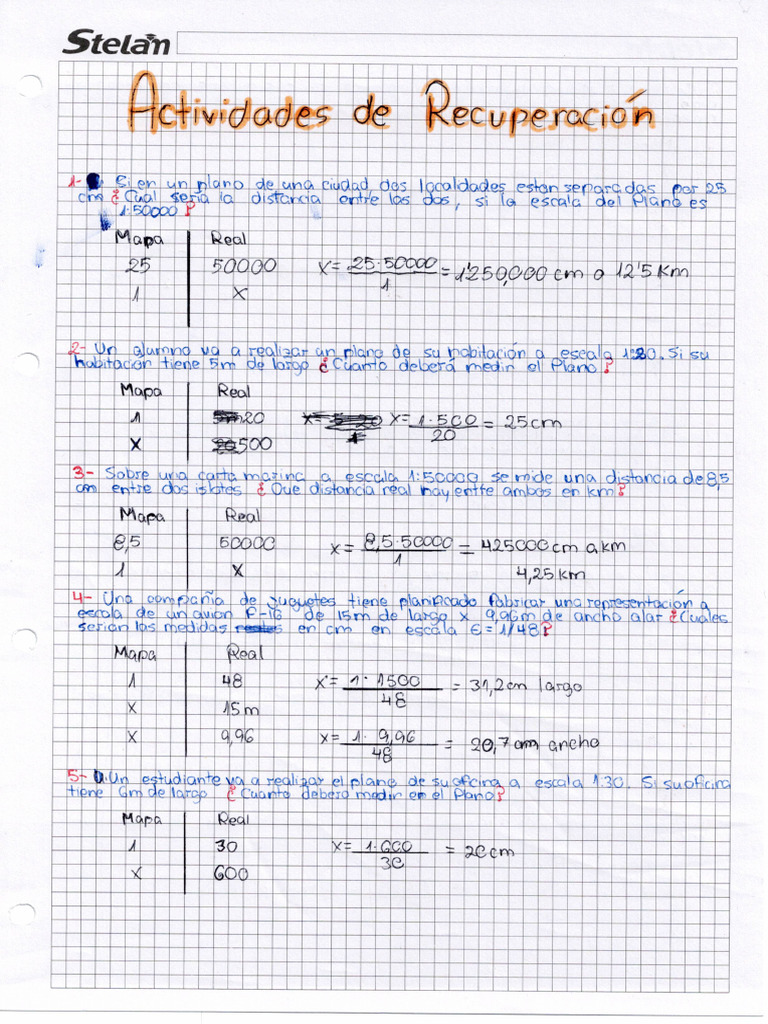 Stelan
Actividades de Recuperación
1- Si en un plano de una ciudad, dos localdades estan separadas por 25
cm ¿Cual seria la distancia entre las dos, si la escala del Plano es
1:50000?
Mapa Real
25 50000 x= 25·50000 / 1 = 1'250,000 cm o 12'5 Km
1 x
2- Un alumno va a realizar un plano de su habitación a escala 1:20. Si su
habitación tiene 5m de largo ¿Cuanto deberá medir el Plano?
Mapa Real
1 20 x= 1·500 / 20 = 25cm
x 500
3- Sobre una carta marina a escala 1:50000 se mide una distancia de 8,5
cm entre dos islotes ¿Que distancia real hay entre ambos en km?
Mapa Real
8,5 50000 x= 8,5·50000 / 1 = 425000 cm a km
1 x 4,25 km
4- Una compañia de juguetes tiene planificado fabricar una representación a
escala de un avion F-16 de 15m de largo x 9,96m de ancho alar ¿Cuales
serian las medidas en cm en escala E=1/48?
Mapa Real
1 48 x= 1·1500 / 48 = 31,2cm largo
x 15m
x 9,96 x= 1·9,96 / 48 = 20,7 cm ancho
5- Un estudiante va a realizar el plano de su oficina a escala 1:30. Si su oficina
tiene 6m de largo ¿Cuanto debera medir en el Plano?
Mapa Real
1 30 x= 1·600 / 30 = 20cm
x 600